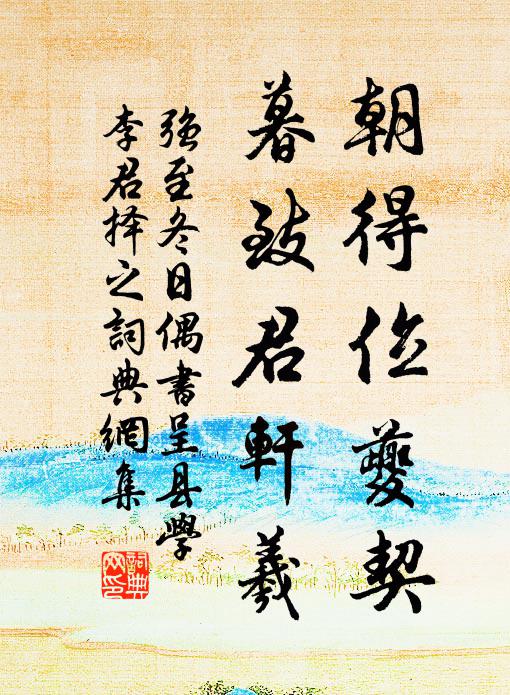 朝得位夔契
暮致君軒羲
強至冬日偶書呈县學
李君择之詞典網集
詞典
网印